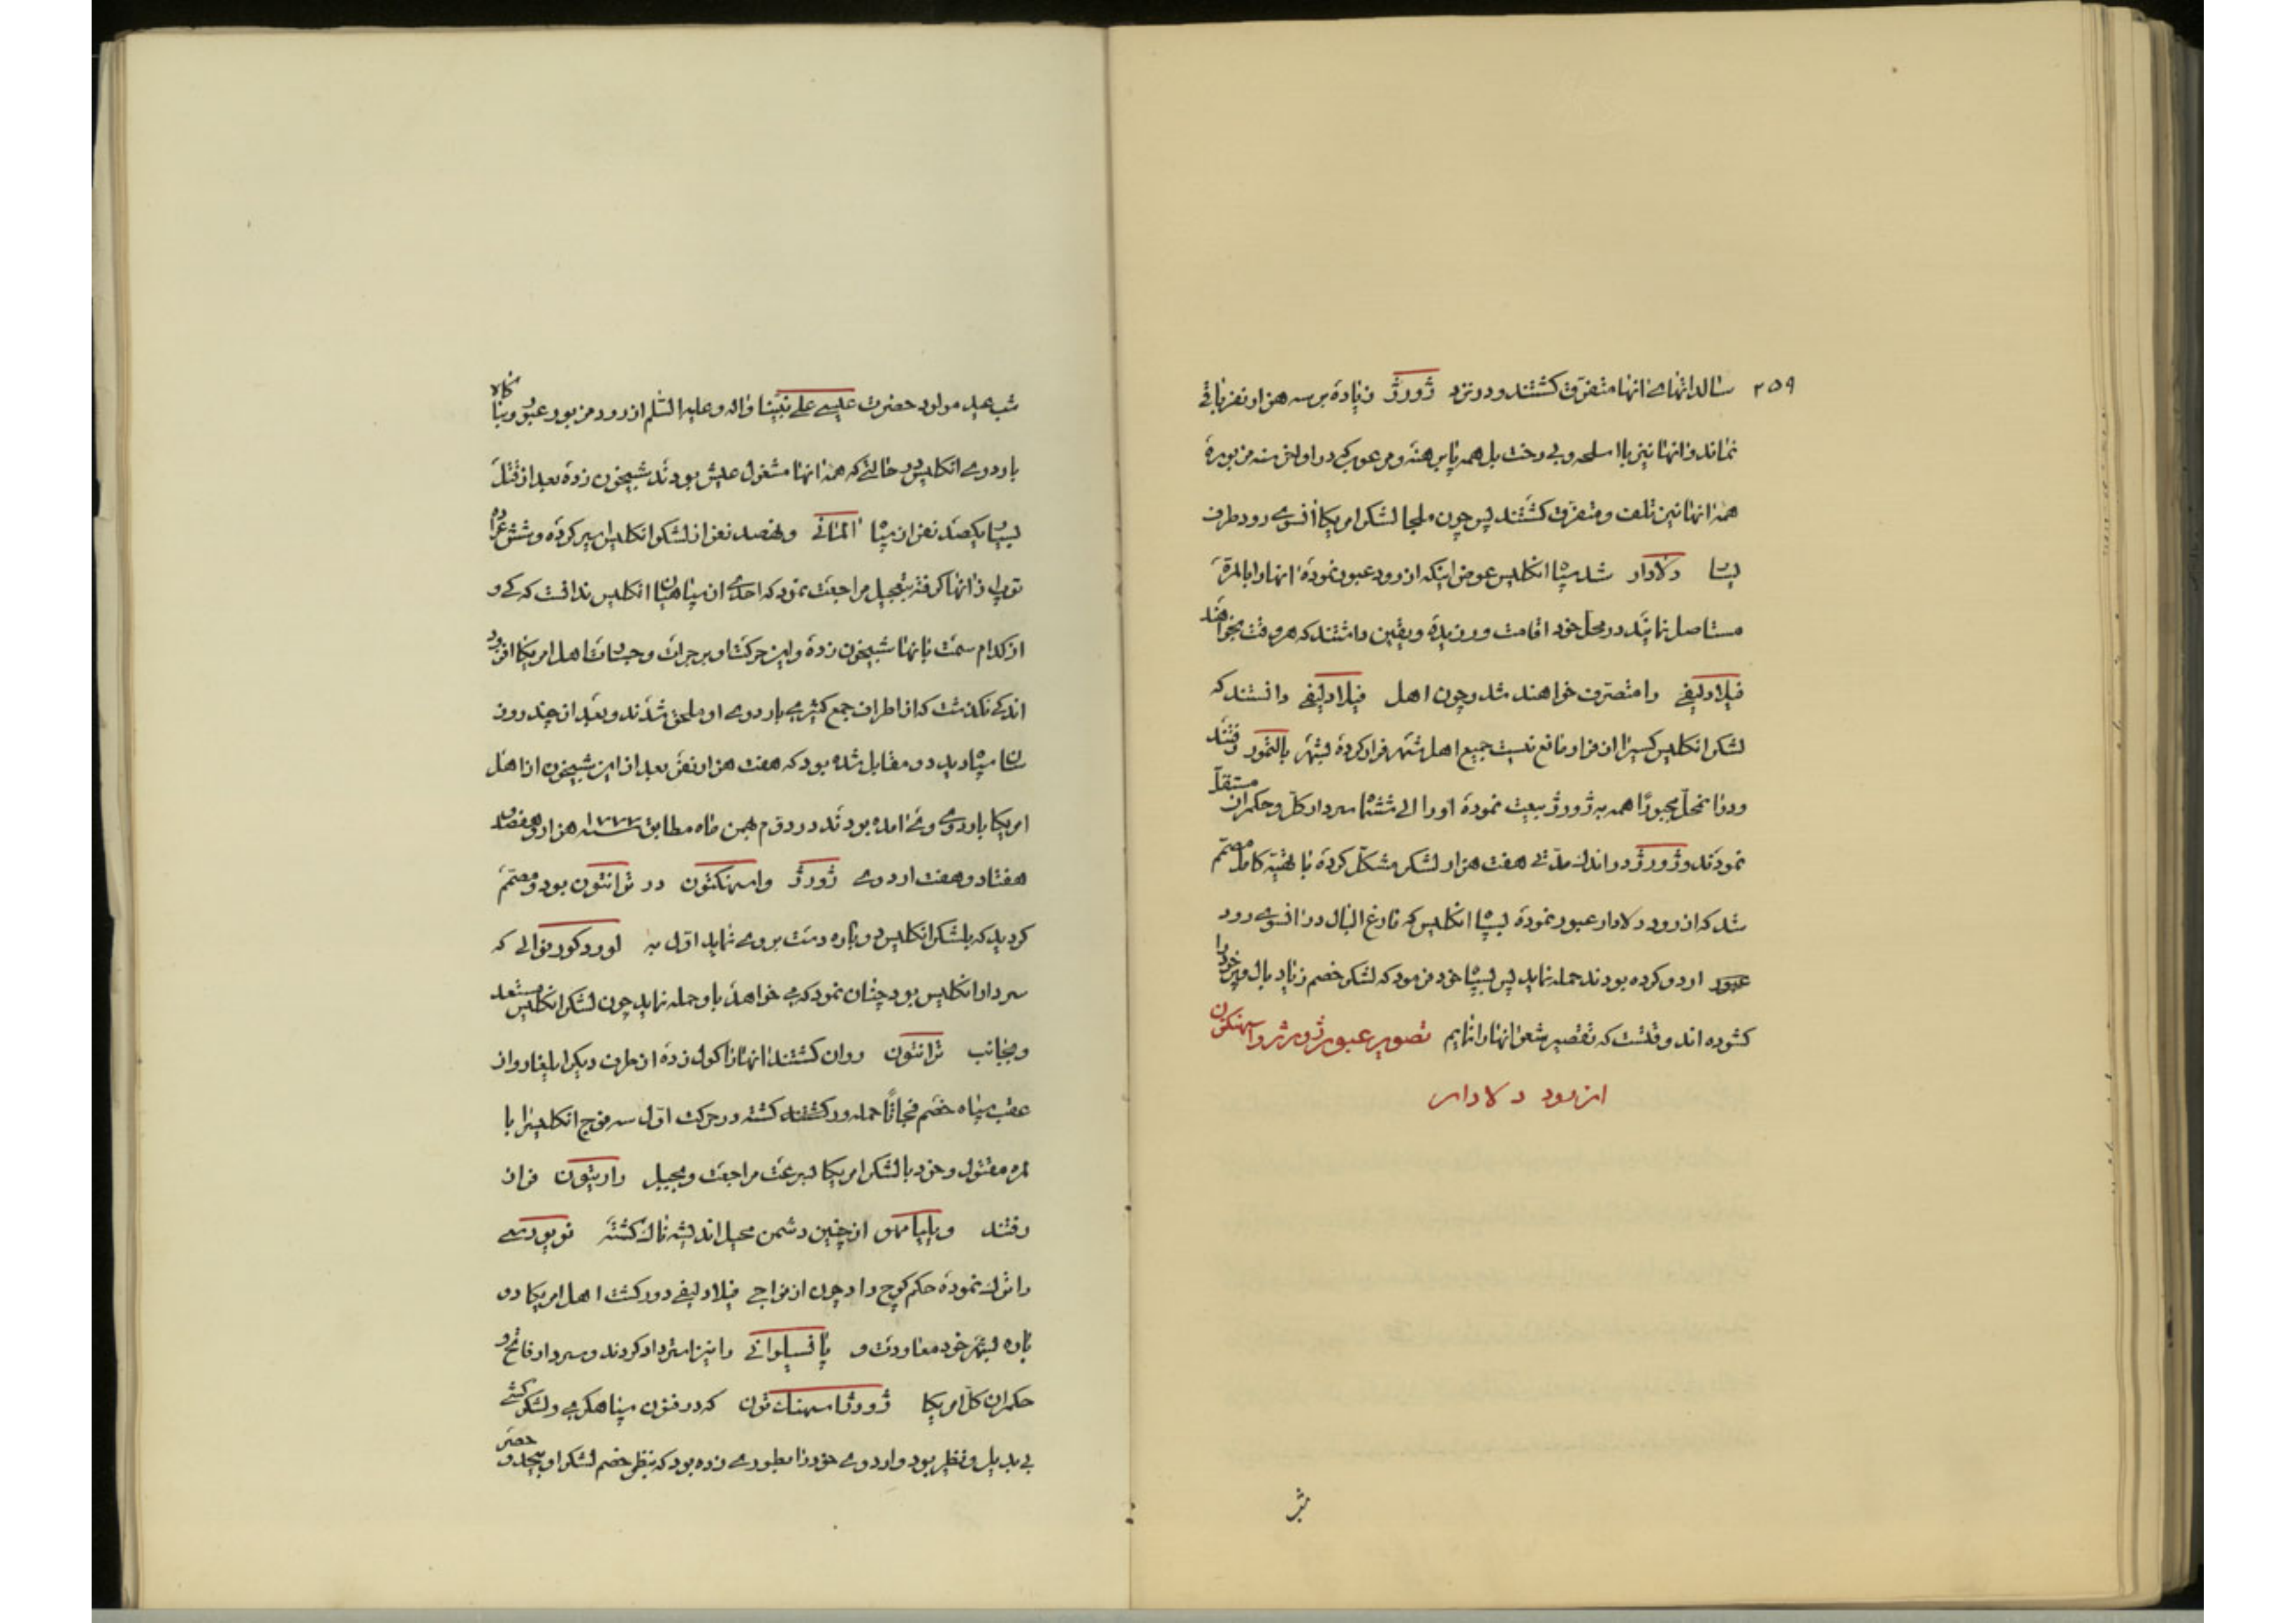 ۲۵۹ سالدانهای انها متفرق کشتند و در نزد ژورژ زیاده بر سه هزار نفر باقی
نماند و انها نیز بلا اسلحه و بی رخت بل همه پابرهنه و مرعوب که در اواخر سنه مزبوره
همه انها نیز تلف و متفرق کشتند پس چون ملجا لشکر امریکا انسوی رود طرف
یسا دلاوار شد سپاه انکلیس عوض اینکه از رود عبور نموده انها را بالمرة
مستاصل نمایند در محل خود اقامت ورزیده و یقین دانستند که هر وقت بخواهند
فیلادلیفی را متصرف خواهند شد و چون اهل فیلادلیفی دانستند که
لشکر انکلیس را از فرار مانع نیست جمیع اهل شهر فرار کرده بشهر بالتمور رفتند
و در محل مجبورا همه به ژورژ بیعت نموده او را الی ششماه سردار کل و حکمران مستقل
نمودند و ژورژ در اندک مدتی هفت هزار لشکر مشکل کرده با تهیه کامل مصمم
شد که از رود دلاوار عبور نموده بسپاه انکلیس که فارغ البال در انسوی رود
عبور اردو کرده بودند حمله نماید پس بسپاه خود فرمود که لشکر خصم زیاد بال و پر خود را
کشوده اند وقتست که تقصیر شعر انها را نمایم تصویر عبور ژورژ واسهنکتون
از رود دلاوار
شب
شب عید مولود حضرت عیسی علی نبینا واله وعلیه السلم از رود مزبور عبور و بنا کاه
باردوی انکلیس در حالتی که همه انها مشغول عیش بودند شبیخون زده بعد از قتل
بسیار یکصد نفر از سپاه المانی و نهصد نفر از لشکر انکلیس اسیر کرده و شش عراده
توپ از انها کرفته بتعجیل مراجعت نمود که احدی از سپاهیان انکلیس ندانست که کی و
از کدام سمت بانها شبیخون زده و این حرکت او بر جرات و جسارت اهل امریکا افزود
اندکی نکذشت که از اطراف جمع کثیری باردوی او ملحق شدند و بعد از چند روز
سان سپاه دید و مقابل شده بود که هفت هزار نفر بعد از این شبیخون از اهل
امریکا باردوی وی امده بودند در دوم بهمن ماه مطابق سنه ۱۷۷۷ هزار و هفصد و
هفتاد و هفت اردوی ژورژ واسهنکتون در ترانتون بود و مصمم
کردید که بلشکر انکلیس دوباره دست بردی نماید اول به لورد کورنوالی که
سردار انکلیس بود چنان نمود که می خواهد باو حمله نماید چون لشکر انکلیس مستعد
و بجانب ترانتون روان کشتند انها را کول زده از طرف دیکر ایلغار و از
عقب سپاه خصم فجاتا حمله ور کشتند کشته در حرکت اول سه فوج انکلیس را با
لمره مقتول و خود با لشکر امریکا بسرعت مراجعت و بجبل داریتون فراز
رفتند و از چنین دشمن محیل اندیشه ناک کشته نویورسی
را ترک نموده حکم کوچ داد چون از نواحی فیلادلیفی دور کشت اهل امریکا دو
باره بشهر خود معاودت و پانسیلوانی را نیز استرداد کردند و سردار فاتح و
حکمران کل امریکا ژورژ واسهنک تون که در فنون سپاهکری و لشکر کشی
بی بدیل و نظیر بود و اردوی خود را بطوری زده بود که بنظر خصم لشکر او بیحد و حصر